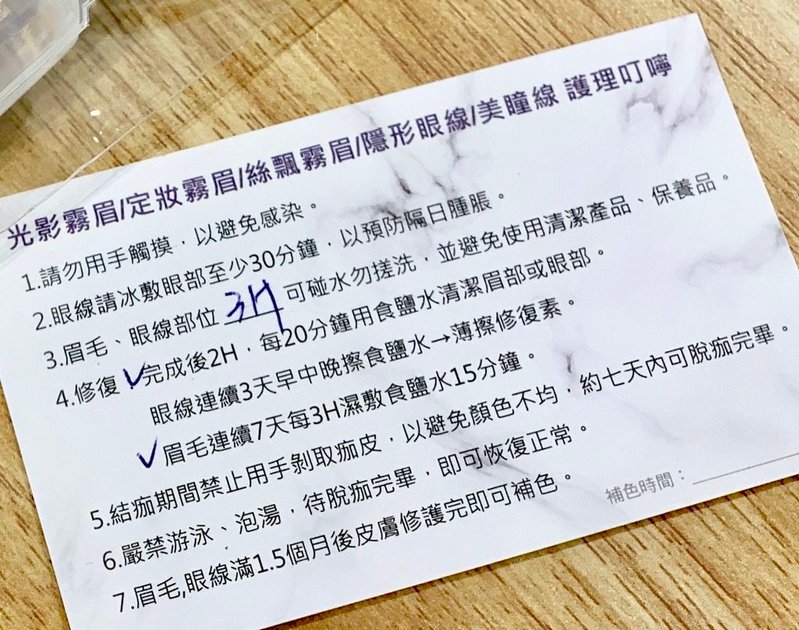 光影霧眉/定妝霧眉/絲飄霧眉/隱形眼線/美瞳線 護理叮嚀
1.請勿用手觸摸，以避免感染。
2.眼線請冰敷眼部至少30分鐘，以預防隔日腫脹。
3.眉毛、眼線部位 3H 可碰水勿搓洗，並避免使用清潔產品、保養品。
4.修復✓完成後2H，每20分鐘用食鹽水清潔眉部或眼部。
眼線連續3天早中晚擦食鹽水→薄擦修復素。
✓眉毛連續7天每3H濕敷食鹽水15分鐘。
5.結痂期間禁止用手剝取痂皮，以避免顏色不均，約七天內可脫痂完畢。
6.嚴禁游泳、泡湯，待脫痂完畢，即可恢復正常。
7.眉毛,眼線滿1.5個月後皮膚修護完即可補色。
補色時間：